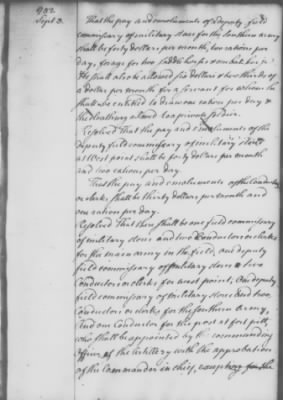 902.
Sept 3.
That the pay and emoluments of a deputy field
commissary of military stores for the southern army
shall be forty dollars per month, two rations per
day, forage for two saddle horses
He shall also be allowed six dollars & two thirds of
a dollar per month for a servant for whom he
shall also be entitled to draw one ration per day &
the cloathing allowed to a private soldier.
Resolved That the pay and emoluments of the
deputy field commissary of military stores
at West point shall be forty dollars per month
and two rations per day.
That the pay and emoluments of the conductors
or clerks shall be thirty dollars per month and
one ration per day.
Resolved That there shall be one field commissary
of military stores and two conductors or clerks
for the main army in the field, one deputy
field commissary of military stores & two
conductors or clerks for west point, One deputy
field commissary of military stores and two
conductors or clerks for the southern army,
and one Conductor for the post at fort pitt,
who shall be appointed by the commanding
officer of the Artillery with the approbation
of the Commander in chief, excepting for the